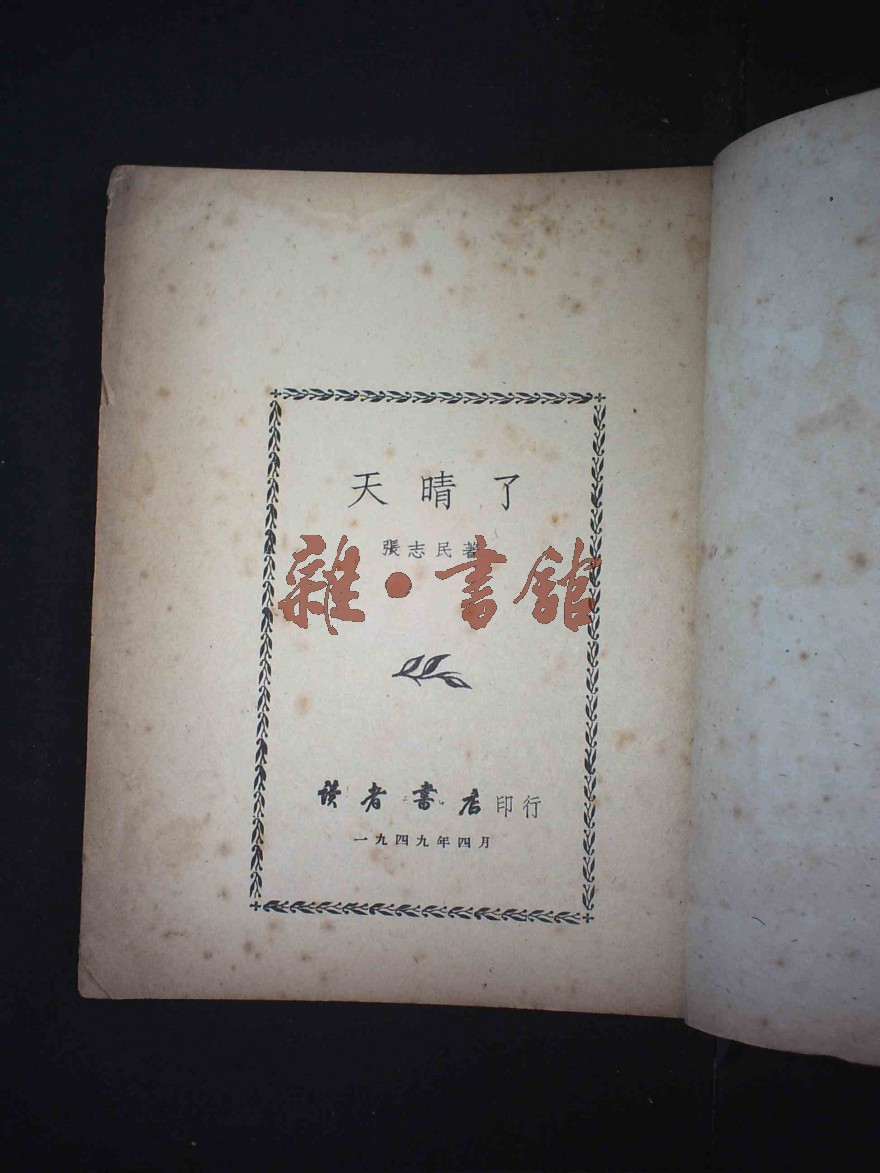 天晴了
張志民著
雜·書舘
讀者書店印行
一九四九年四月